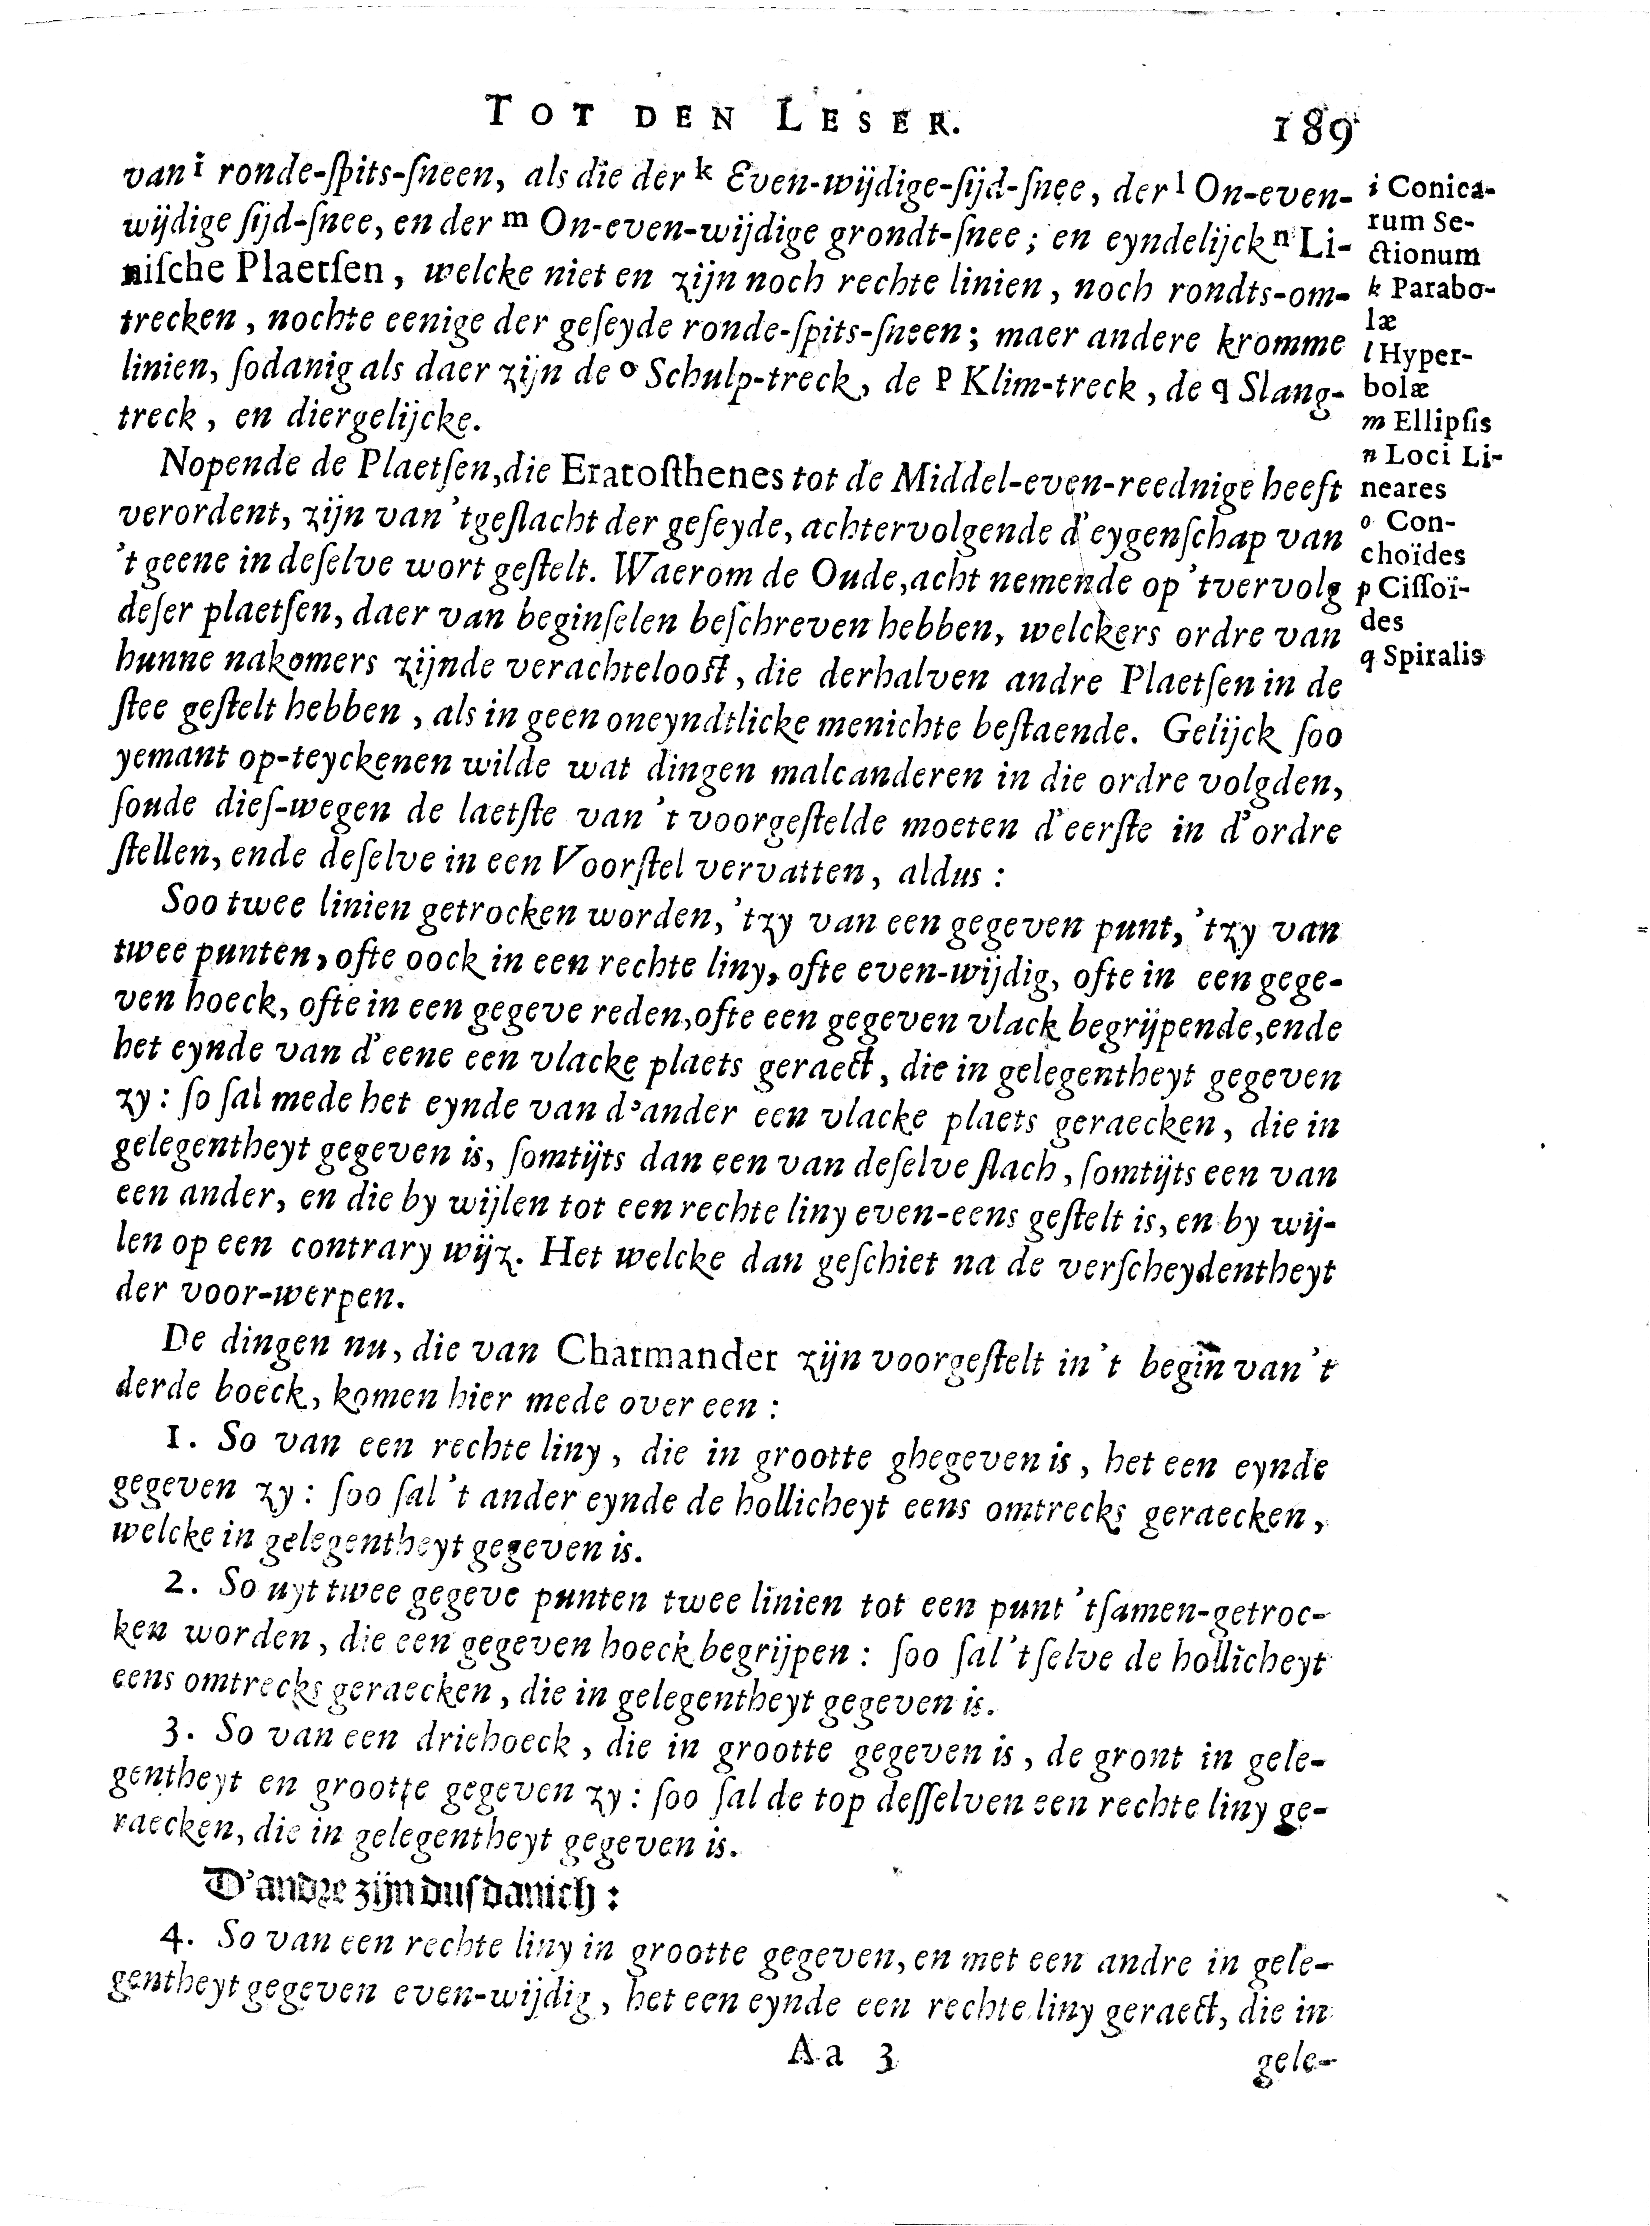 TOT DEN LESER. 189
van i ronde-ſpits-ſneen, als die der k Even-wijdige-ſijd-ſnee, der l On-even-
wijdige ſijd-ſnee, en der m On-even-wijdige grondt-ſnee; en eyndelijck n Li-
niſche Plaetſen, welcke niet en zijn noch rechte linien, noch rondts-om-
trecken, nochte eenige der geſeyde ronde-ſpits-ſneen; maer andere kromme
linien, ſodanig als daer zijn de o Schulp-treck, de p Klim-treck, de q Slang-
treck, en diergelijcke.
i Conica-
rum Se-
ctionum
k Parabo-
læ
l Hyper-
bolæ
m Ellipſis
n Loci Li-
neares
o Con-
choïdes
p Ciſſoï-
des
q Spiralis
Nopende de Plaetſen, die Eratoſthenes tot de Middel-even-reednige heeft
verordent, zijn van 'tgeſlacht der geſeyde, achtervolgende d'eygenſchap van
't geene in deſelve wort geſtelt. Waerom de Oude, acht nemende op 'tvervolg
deſer plaetſen, daer van beginſelen beſchreven hebben, welckers ordre van
hunne nakomers zijnde verachtelooſt, die derhalven andre Plaetſen in de
ſtee geſtelt hebben, als in geen oneyndtlicke menichte beſtaende. Gelijck ſoo
yemant op-teyckenen wilde wat dingen malcanderen in die ordre volgden,
ſoude dieſ-wegen de laetſte van 't voorgeſtelde moeten d'eerſte in d'ordre
ſtellen, ende deſelve in een Voorſtel vervatten, aldus:
Soo twee linien getrocken worden, 'tzy van een gegeven punt, 'tzy van
twee punten, ofte oock in een rechte liny, ofte even-wijdig, ofte in een gege-
ven hoeck, ofte in een gegeve reden, ofte een gegeven vlack begrijpende, ende
het eynde van d'eene een vlacke plaets geraeckt, die in gelegentheyt gegeven
zy: ſo ſal mede het eynde van d'ander een vlacke plaets geraecken, die in
gelegentheyt gegeven is, ſomtijts dan een van deſelve ſlach, ſomtijts een van
een ander, en die by wijlen tot een rechte liny even-eens geſtelt is, en by wij-
len op een contrary wijz. Het welcke dan geſchiet na de verſcheydentheyt
der voor-werpen.
De dingen nu, die van Charmander zijn voorgeſtelt in 't begin van 't
derde boeck, komen hier mede over een:
1. So van een rechte liny, die in grootte ghegeven is, het een eynde
gegeven zy: ſoo ſal 't ander eynde de hollicheyt eens omtrecks geraecken,
welcke in gelegentheyt gegeven is.
2. So uyt twee gegeve punten twee linien tot een punt 'tſamen-getroc-
ken worden, die een gegeven hoeck begrijpen: ſoo ſal 't ſelve de hollicheyt
eens omtrecks geraecken, die in gelegentheyt gegeven is.
3. So van een driehoeck, die in grootte gegeven is, de gront in gele-
gentheyt en grootte gegeven zy: ſoo ſal de top deſſelven een rechte liny ge-
raecken, die in gelegentheyt gegeven is.
D'andre zijn dusdanich:
4. So van een rechte liny in grootte gegeven, en met een andre in gele-
gentheyt gegeven even-wijdig, het een eynde een rechte liny geraeckt, die in
Aa 3 gele-